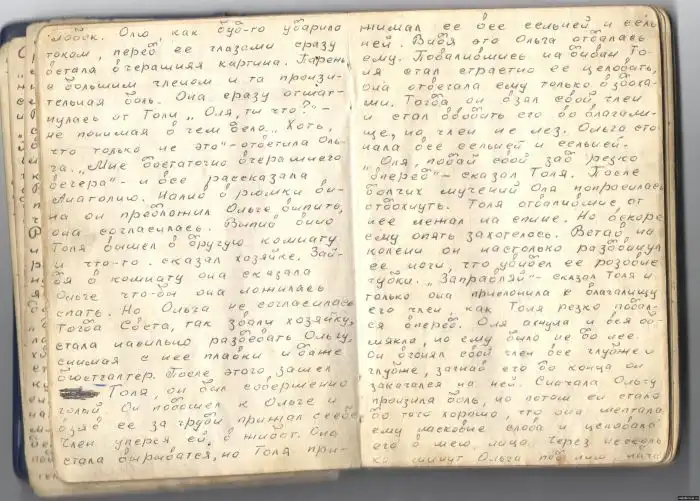 лобок. Олю как буд-то ударило
током, перед ее глазами сразу
встала вчерашняя картина. Парень
с большим членом и та произи-
тельная боль. Она сразу отшат-
нулась от Толи „Оля, ты что?" -
не понимая в чем дело. „Хоть,
что только не это" - ответила Оль-
га. „Мне достаточно вчерашнего
вечера" - и все рассказала
Анатолию. Налив в рюмки ви-
на он предложил Ольге выпить,
она согласилась. Выпив вино
Толя вышел в другую комнату
и что-то сказал хозяйке. Зай-
дя в комнату она сказала
Ольге что-бы она ложилась
спать. Но Ольга не согласилась
Тогда Света, так звали хозяйку,
стала насильно раздевать Ольгу,
снимая с нее плавки и даже
бюстгалтер. После этого зашел
Толя, он был совершенно
голый Он подошел к Ольге и
взяв ее за груди прижал к себе
Член уперся ей в живот. Она
стала вырыватся, но Толя при-
жимал ее все сельней и сель
ней. Видя это Ольга отдалась
ему. Повалившись на диван То-
ля стал страстно ее целовать,
она отвечала ему только вздоха-
ми. Тогда он взял свой член
и стал вводить его во влагали-
ще, но член не лез. Ольга сто-
нала все сельней и сельней.
„Оля, подай свой зад резко
вперед" - сказал Толя. После
долгих мучений Оля попросилась
отдохнуть. Толя отвалившись от
нее лежал на спине. Но вскоре
ему опять захотелось. Встав на
колени он настолько раздвинул
ее ноги, что увидел ее розовые
губки. „Заправляй" - сказал Толя и
только она прислонила к влагалищу
его член, как Толя резко подал-
ся вперед. Оля ахнула и вся об-
мякла, но ему было не до нее.
Он вгонял свой член все глубже и
глубже, загнав его до конца он
закачался на ней. Сначала Ольгу
пронзила боль, но потом ей стало
до того хорошо, что она шептала
ему ласковые слова и целовала
его в шею, лицо. Через несколь
ко минут Ольга под ним